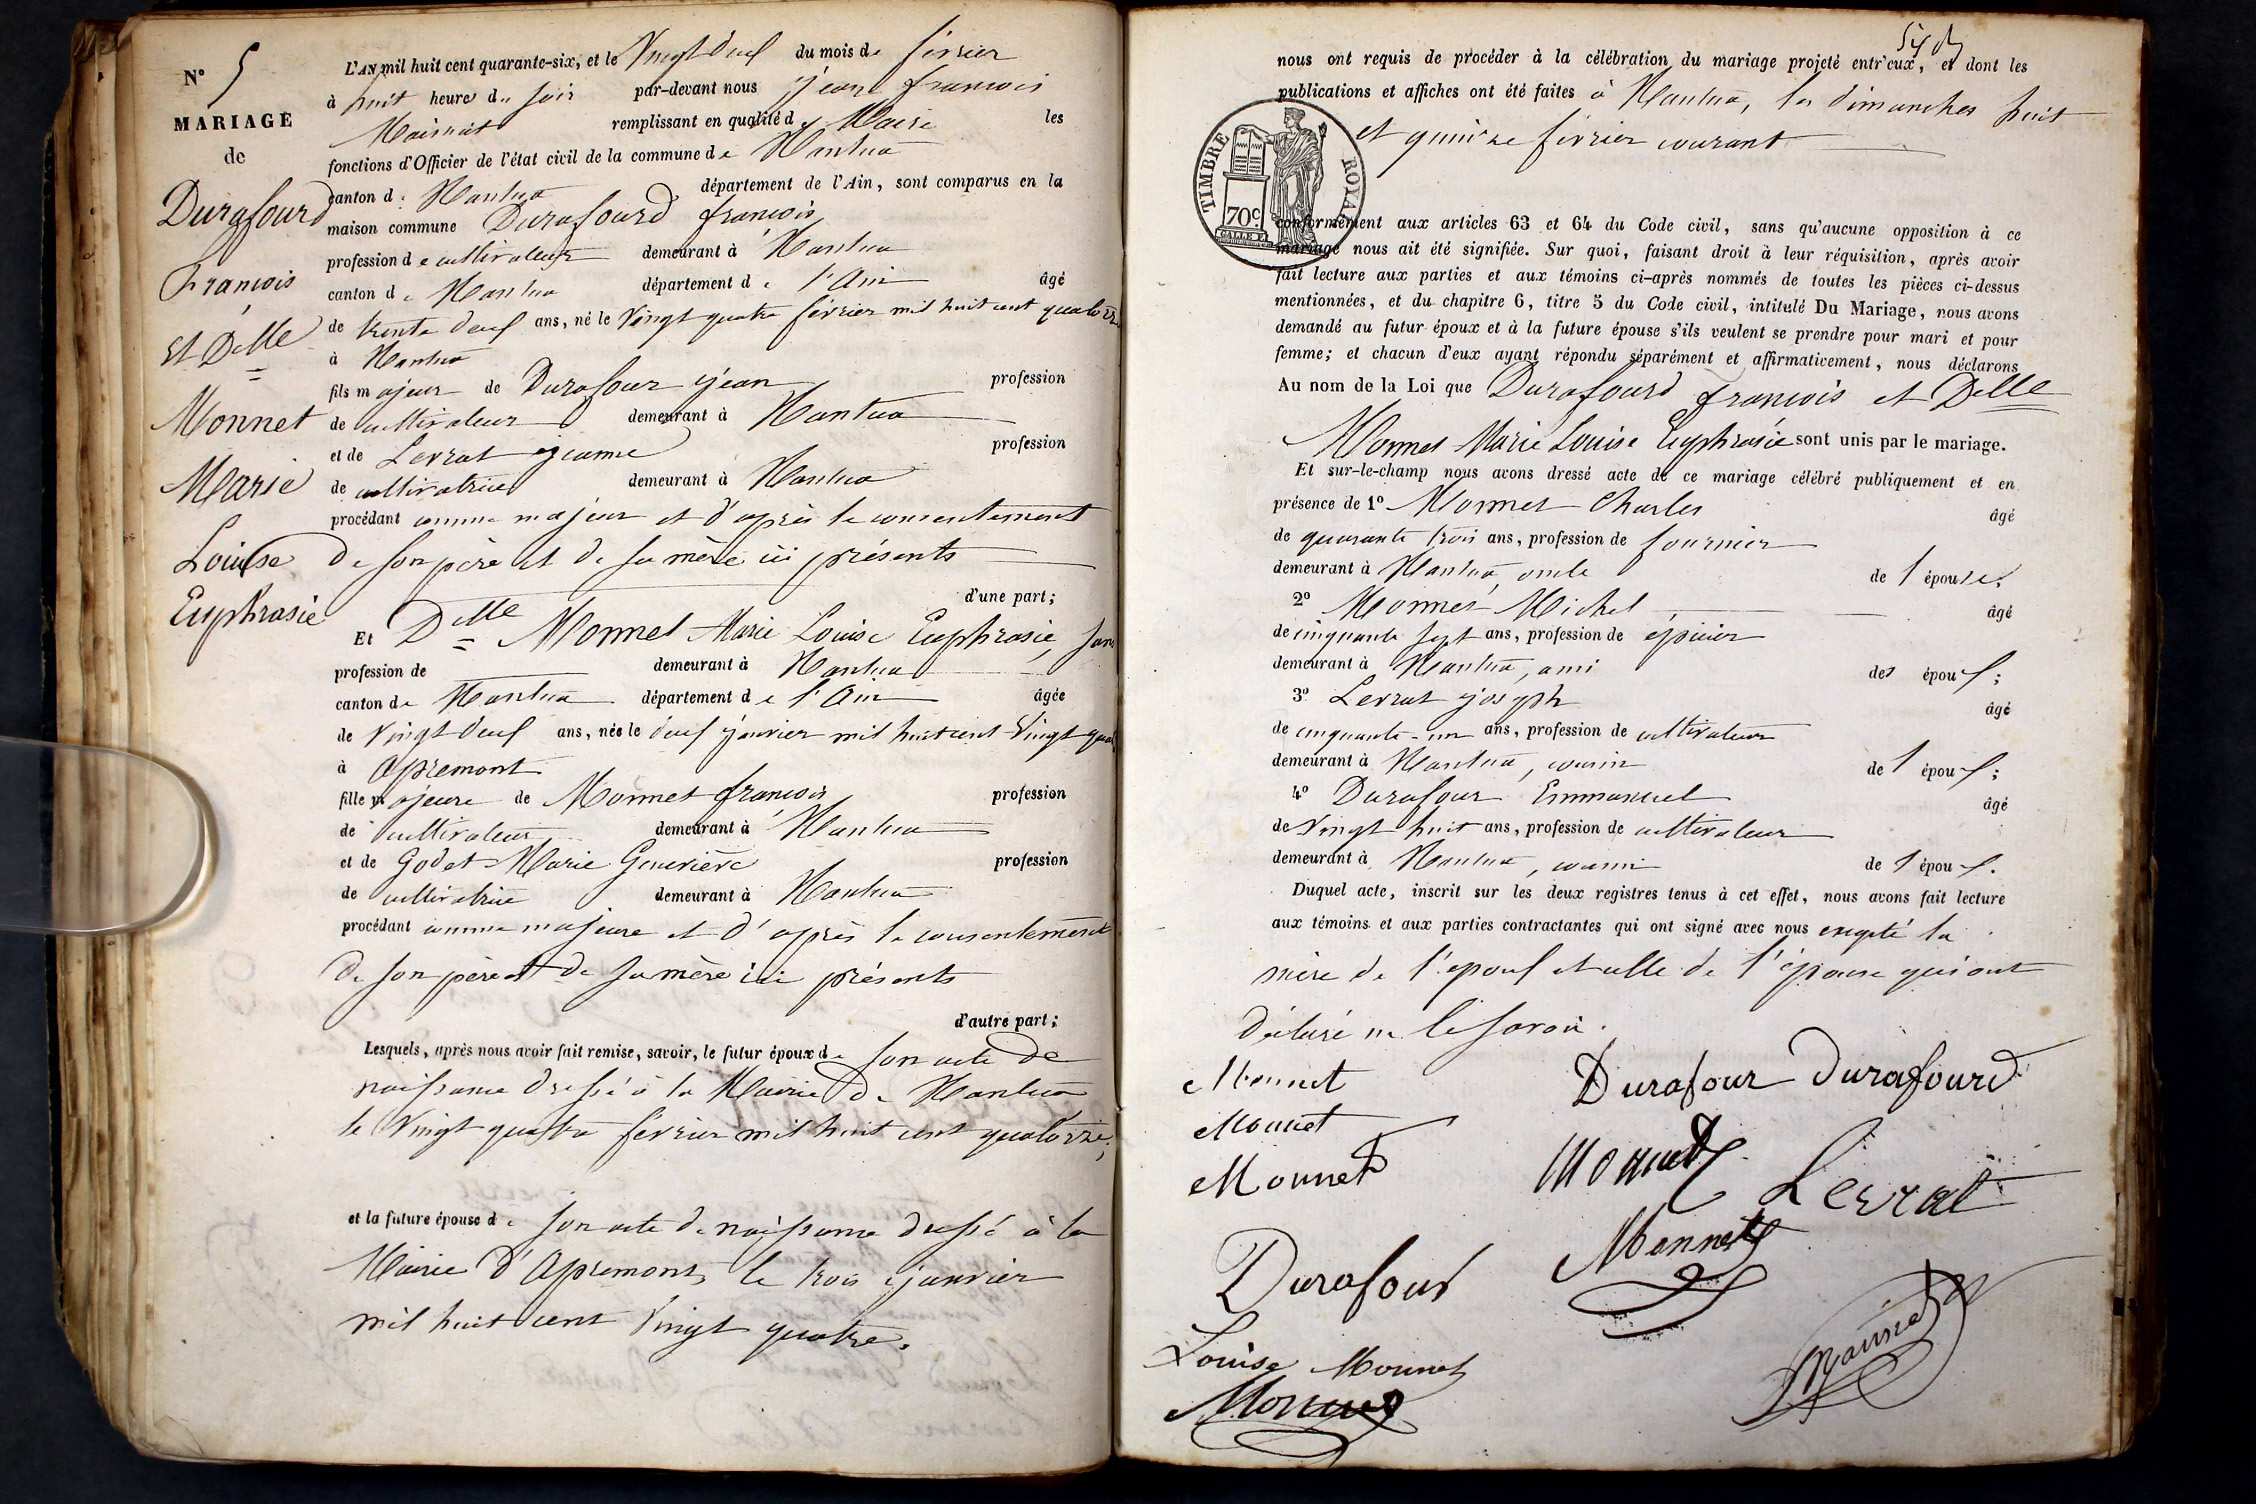 N° 5
MARIAGE
de
Durafourd
François
et Delle
Monnet
Marie
Louise
Euphrasie
L'AN mil huit cent quarante-six, et le Vingt deux du mois de février
à huit heures du soir par-devant nous jean françois
Maissiat remplissant en qualité de Maire les
fonctions d'Officier de l'état civil de la commune de Nantua
canton de Nantua département de l'Ain, sont comparus en la
maison commune Durafourd françois
profession de cultivateur demeurant à Nantua
canton de Nantua département de l'Ain âgé
de trente deux ans, né le Vingt quatre février mil huit cent quatorze
à Nantua
fils majeur de Durafour jean profession
de cultivateur demeurant à Nantua
et de Levrat jeanne profession
de cultivatrice demeurant à Nantua
procédant comme majeur et d'après le consentement
de son père et de sa mère ici présents
d'une part;
Et Delle Monnet Marie Louise Euphrasie, sans
profession de demeurant à Nantua
canton de Nantua département de l'Ain âgée
de Vingt deux ans, née le deux janvier mil huit cent Vingt quatre
à Apremont
fille majeure de Monnet françois profession
de cultivateur demeurant à Nantua
et de Godet Marie Genevière profession
de cultivatrice demeurant à Nantua
procédant comme majeure et d'après le consentement
de son père et de sa mère ici présents
d'autre part;
Lesquels, après nous avoir fait remise, savoir, le futur époux de son acte de
naissance dressé à la Mairie de Nantua
le Vingt quatre février mil huit cent quatorze;
et la future épouse de son acte de naissance dressé à la
Mairie d'Apremont, le trois janvier
mil huit cent Vingt quatre.
nous ont requis de procéder à la célébration du mariage projeté entr'eux, et dont les
publications et affiches ont été faites à Nantua, les dimanches huit
et quinze février courant
TIMBRE ROYAL
70c
conformément aux articles 63 et 64 du Code civil, sans qu'aucune opposition à ce
mariage nous ait été signifiée. Sur quoi, faisant droit à leur réquisition, après avoir
fait lecture aux parties et aux témoins ci-après nommés de toutes les pièces ci-dessus
mentionnées, et du chapitre 6, titre 5 du Code civil, intitulé Du Mariage, nous avons
demandé au futur époux et à la future épouse s'ils veulent se prendre pour mari et pour
femme; et chacun d'eux ayant répondu séparément et affirmativement, nous déclarons
Au nom de la Loi que Durafourd françois et Delle
Monnet Marie Louise Euphrasie sont unis par le mariage.
Et sur-le-champ nous avons dressé acte de ce mariage célébré publiquement et en
présence de 1° Monnet Charles âgé
de quarante trois ans, profession de fournier
demeurant à Nantua, oncle de l'épouse;
2° Monnet Michel âgé
de cinquante sept ans, profession de épicier
demeurant à Nantua, ami des époux;
3° Levrat joseph âgé
de cinquante-un ans, profession de cultivateur
demeurant à Nantua, cousin de l'époux;
4° Durafour Emmanuel âgé
de Vingt huit ans, profession de cultivateur
demeurant à Nantua, cousin de l'époux.
Duquel acte, inscrit sur les deux registres tenus à cet effet, nous avons fait lecture
aux témoins et aux parties contractantes qui ont signé avec nous excepté la
mère de l'époux et celle de l'épouse qui ont
déclaré ne le savoir.
Monnet Durafour durafourd
Monnet
Monnet Monnet Levrat
Durafour Monnet
Louise Monnet Maissiat
Monnet